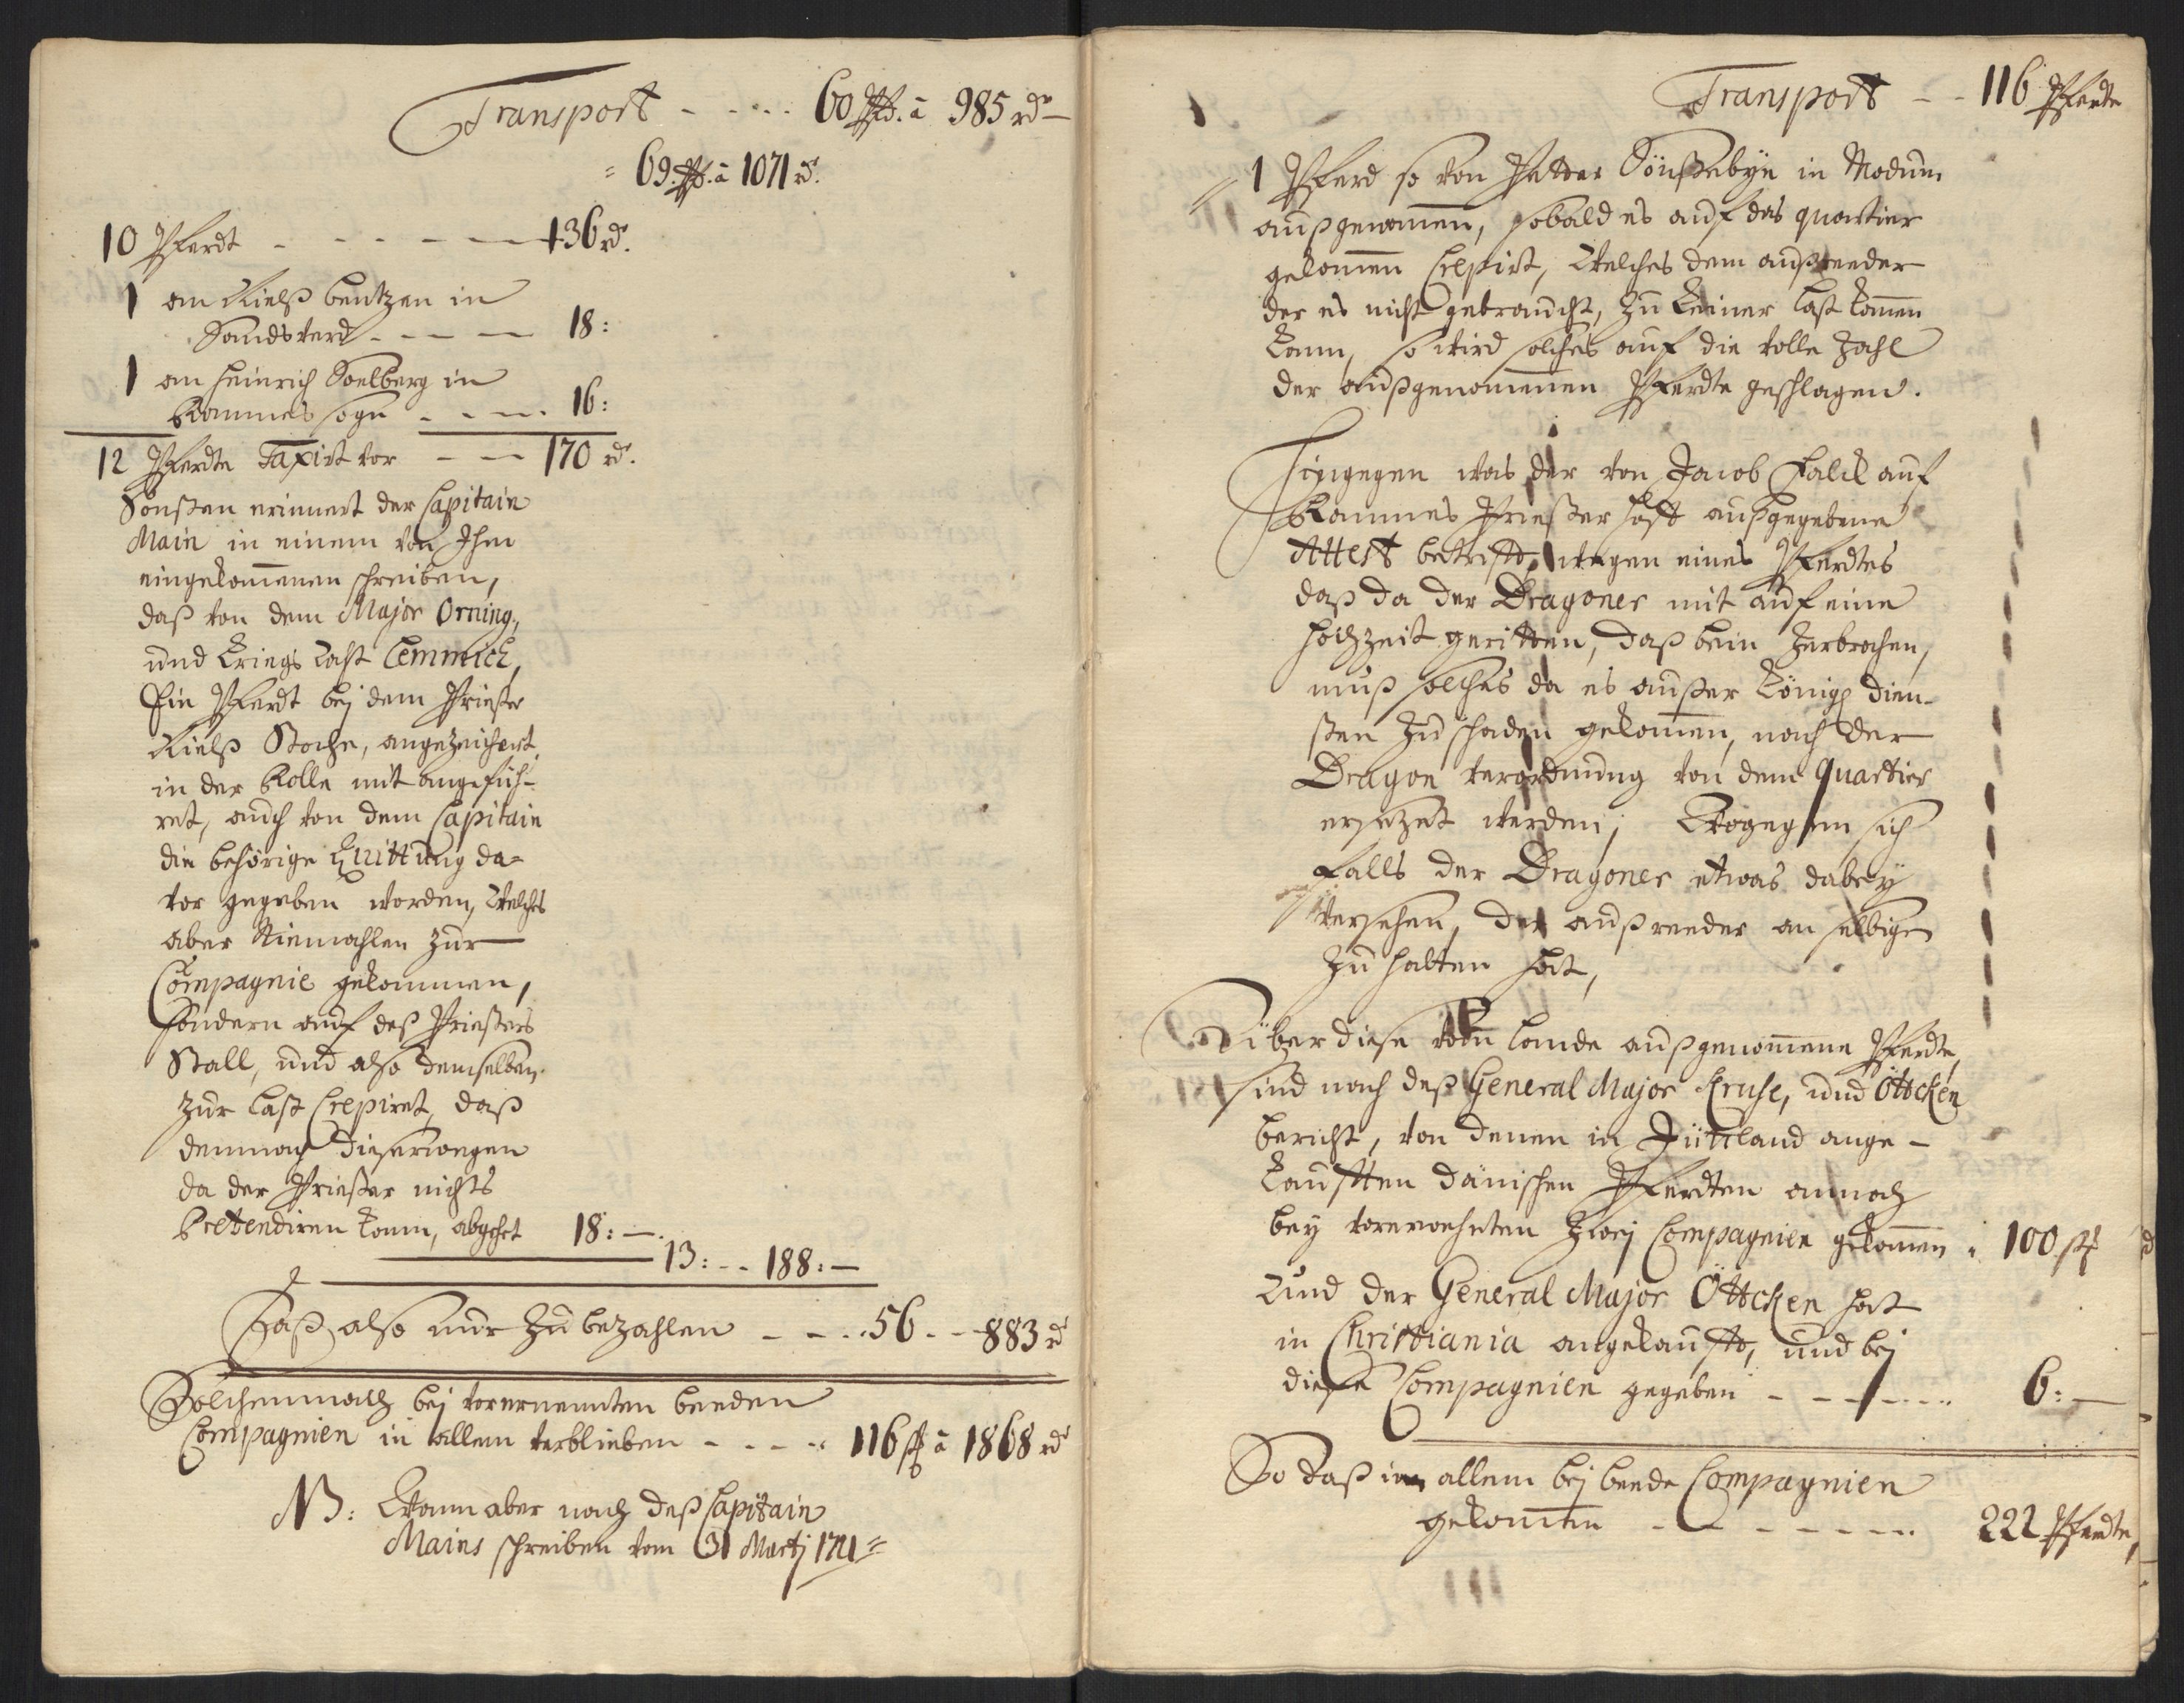 Transport - - - - 60 Pfd. à 985 rd –
= 69. Pfd. à 1071 rd.
10 Pferdt - - - - - - 136 rd.
1 an Nielß bentzen in
Sandsverd - - - - 18:
1 an Heinrich Soelberg in
Rammes sogn - - - - 16:
12 Pferdte Taxirt vor - - 170 rd.
Sonsten erinnert der Capitain
Main in einem von Ihm
eingekommenen schreiben,
daß von dem Major Orning,
und Kriegs
Ein Pferdt bej dem Priester
Nielß angezeichent,
in der Rolle mit angefüh-
ret, auch von dem Capitain
die behörige Quittung da-
vor gegeben worden, Welches
aber Niemahlen zur
Compagnie gekommen,
sondern auf deß Priesters
Stall, und also demselben
zur last Crepiret, daß
demnach dieserwegen
da der Priester nichts
Prettendiren kann, abgehet 18: –.
13: - - 188: –
Daß also nur zu bezahlen - - - 56 - - 883 rd
Solchemnach bej vorernennten beeden
Compagnien in allem verblieben - - - - 116 stk à 1868 rd
NB: Wann aber nach deß Capitain
Mains schreiben vom 31 Martj 1711 =
Transport - - 116 Pferdte
1 Pferd so von Petter in Modum
außgenommen, sobald es auf das quartier
gekommen Crepirt, Welches dem außreeder
der es nicht gebraucht, zu keiner last kommen
kann, so wird solches auf die volle Zahl
der außgenommenen Pferdte geschlagen.
Hingegen was der von Jacob Falck auf
Rammes Priester hoff außgegebene
Attest betrifft, wegen eines Pferdtes
daß da der Dragoner mit auf eine
Hochzeit geritten, daß bein Zerbrochen,
muß solches da es außer Königs dien-
sten zu schaden gekommen, nach der
Dragon verordnung von dem Quartier
ersezet werden; Wogegen sich
falls der Dragoner etwas dabey
versehen, der außreeder an selbigen
zu halten hat,
Über diese vom lande außgenommene Pferdte,
sind nach deß General Major Kruse, und Öttcken
bericht, von denen in Jüttland ange-
kaufften dänischen Pferdten annoch
bey vorerwehnten Zwej Compagnien gekommen : 100 stk
Und der General Major Öttcken hat
in Christiania angekaufft, und bej
diese Compagnien gegeben - - - - - - - 6: –
So daß in allem bej beede Compagnien
gekommen - - - - - - - 222 Pferdte,